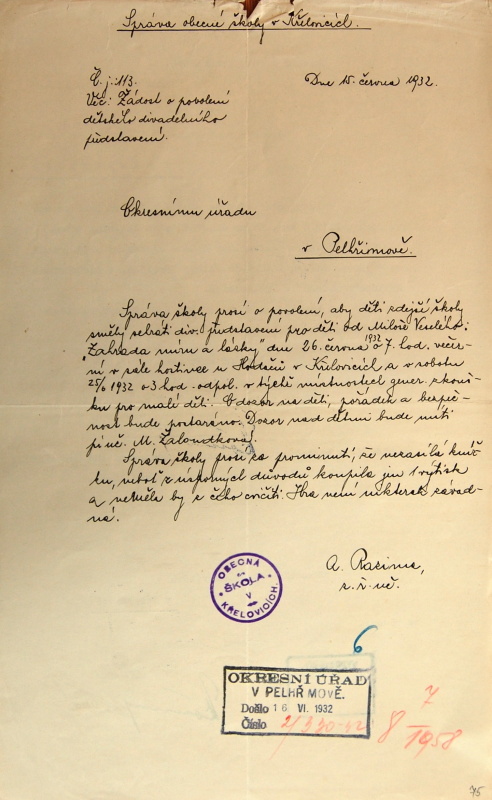 Správa obecné školy v Křelovicích.
Č. j.: 113.
Dne 15. června 1932.
Věc: Žádost o povolení
dětského divadelního
představení.
Okresnímu úřadu
v Pelhřimově.
Správa školy prosí o povolení, aby děti zdejší školy
směly sehráti div. představení pro děti od Miloše
"Zahrada míru a lásky" dne 26. června 1932 o 7. hod. večer-
ní v sále hostince u Hodačů v Křelovicích a v sobotu
25/6 1932 o 3 hod. odpol. v týchž místnostech gener. zkouš-
ku pro malé děti. O dozor na děti, pořádek a bezpeč-
nost bude postaráno. Dozor nad dětmi bude míti
pí uč. M. Žaloudková.
Správa školy prosí za prominutí, že nezasílá kníž-
ku, neboť z úsporných důvodů koupila jen 1 výtisk
a neměla by z čeho cvičiti. Hra není nikterak závad-
ná.
A.
z. ř. uč.
OBECNÁ ŠKOLA V KŘELOVICÍCH.
6
OKRESNÍ ÚŘAD
V PELHŘIMOVĚ.
Došlo 16 VI. 1932
Číslo
7
8
1958
75